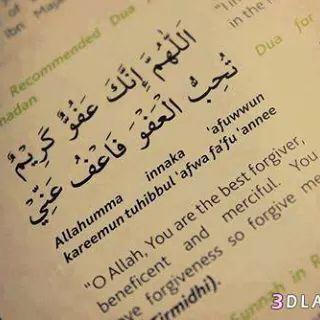 Recommended Dua
Dua for
in the
اَللّٰهُمَّ إِنَّكَ عَفُوٌّ كَرِيْمٌ
تُحِبُّ الْعَفْوَ فَاعْفُ عَنِّيْ
Allahumma innaka 'afuwwun
kareemun tuhibbul 'afwa fa'fu 'annee
"O Allah, You are the best forgiver,
beneficent and merciful. You
forgiveness so forgive me
Tirmidhi).
Sunnah in R
3DLA